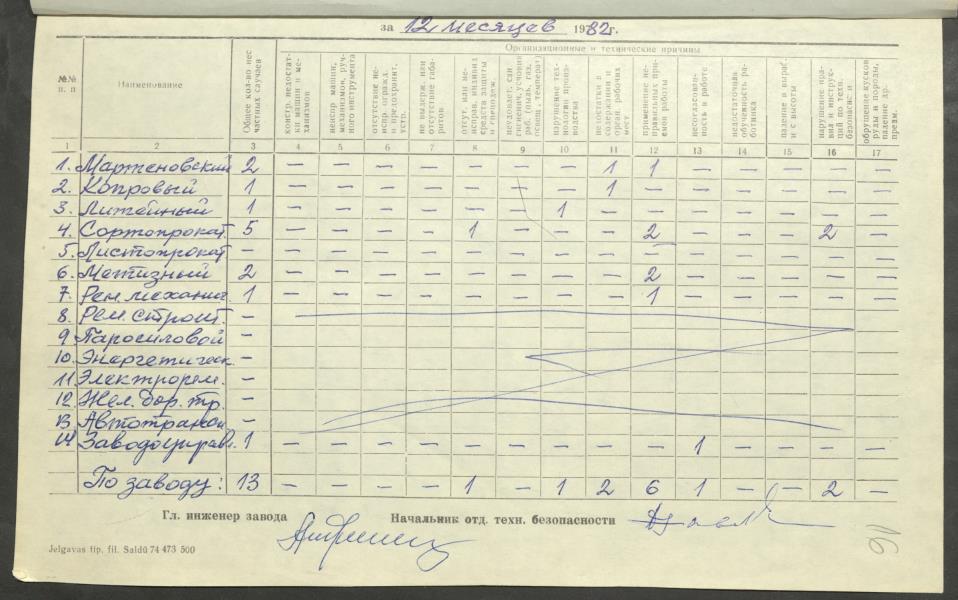 за 12 месяцев 1982г.
Организационные и технические причины
№№ п. п
Наименование
Общее кол-во несчастных случаев
констр. недостатки машин и механизмов
неиспр машин, механизмов, ручного инструмента
отсутствие неиспр огражд. предохранит. устр.
не выдерж. или отсутствие габаритов
отсут. или неисправ. индивид средств защиты и спецодеж.
неудовлет. сан гигиенич. условия раб. (пыль, газ, освещ., температ)
нарушение технологии производства
недостатки в содержании и орган. рабочих мест.
применение неправильных приемов работы
несогласованность в работе
недостаточная обученность работника
падение и выраб. и с высоты
нарушение правил и инструкций по техн. безопасн: и
обрушение кусков руды и породы, падение др. предм.
1 2 3 4 5 6 7 8 9 10 11 12 13 14 15 16 17
1. Мартеновский 2 — — — — — — — 1 1 — — — — —
2. Копровый 1 — — — — — — — 1 — — — — — —
3. Литейный 1 — — — — — — 1 — — — — — — —
4. Сортопрокат. 5 — — — — 1 — — — 2 — — — 2 —
5. Листопрокат — — — — — — — — — — — — — — —
6. Метизный 2 — — — — — — — — 2 — — — — —
7. Рем. механич 1 — — — — — — — — 1 — — — — —
8. Рем. строит. —
9. Паросиловой —
10. Энергетическ. —
11. Электрорем. —
12. Жел. дор. тр. —
13. Автотрансп —
14. Заводоуправл. 1 — — — — — — — — — 1 — — — —
По заводу: 13 — — — — 1 — 1 2 6 1 — — 2 —
Гл. инженер завода Начальник отд. техн. безопасности
Jelgavas tip. fil. Saldū 74 473 500